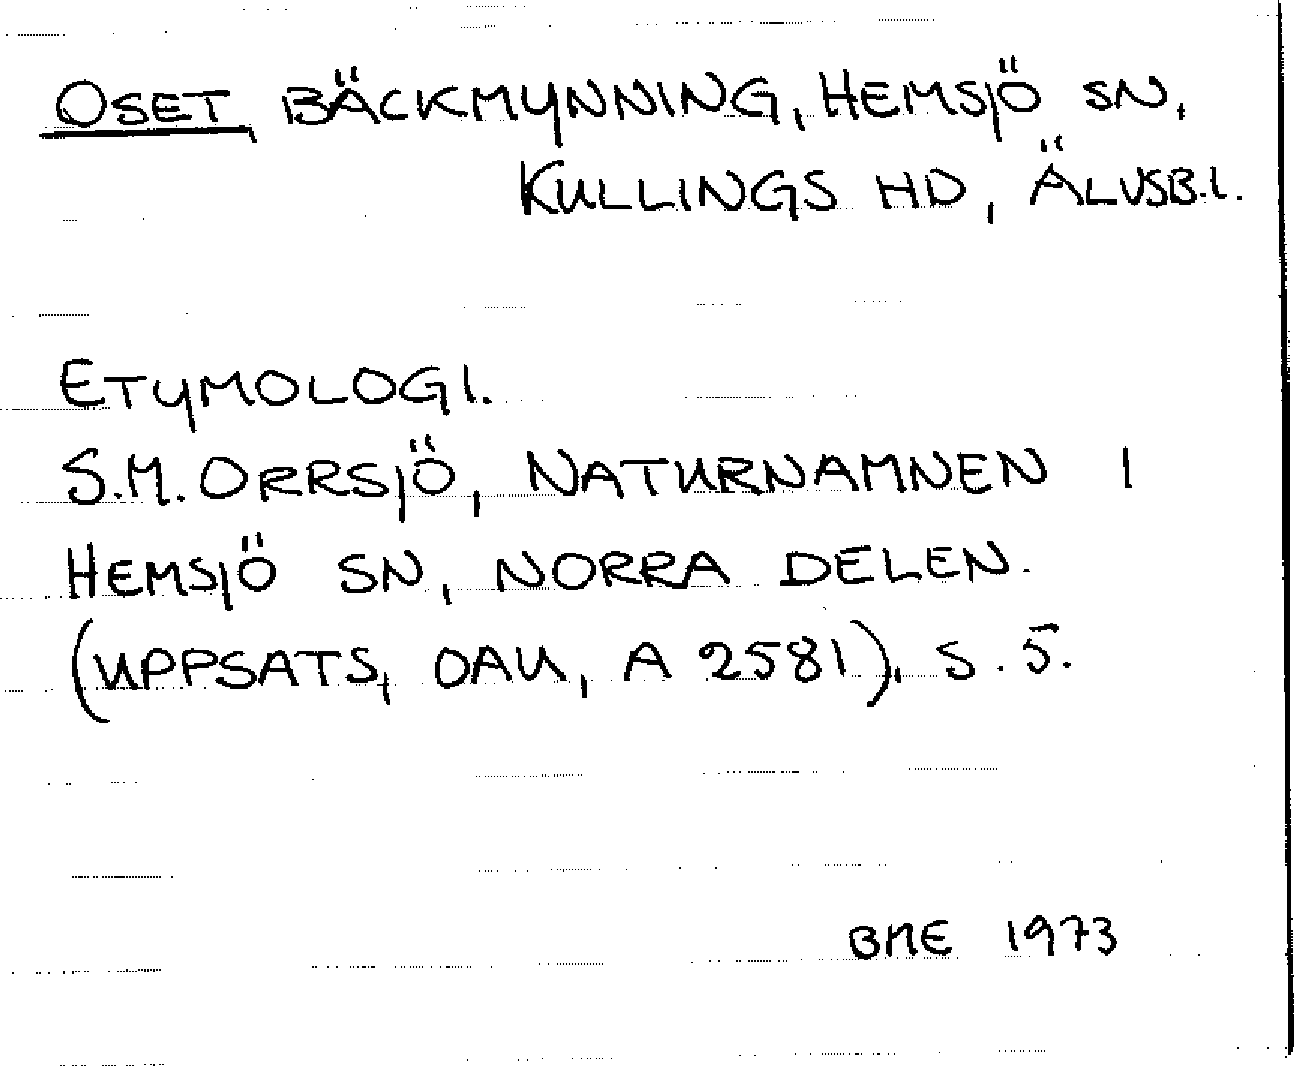 OSET, BÄCKMYNNING, HEMSJÖ SN,
KULLINGS HD, ÄLVSB.L.
ETYMOLOGI.
S.M. ORRSJÖ, NATURNAMNEN I
HEMSJÖ SN, NORRA DELEN.
(UPPSATS, OAU, A 2581), S. 5.
BME 1973